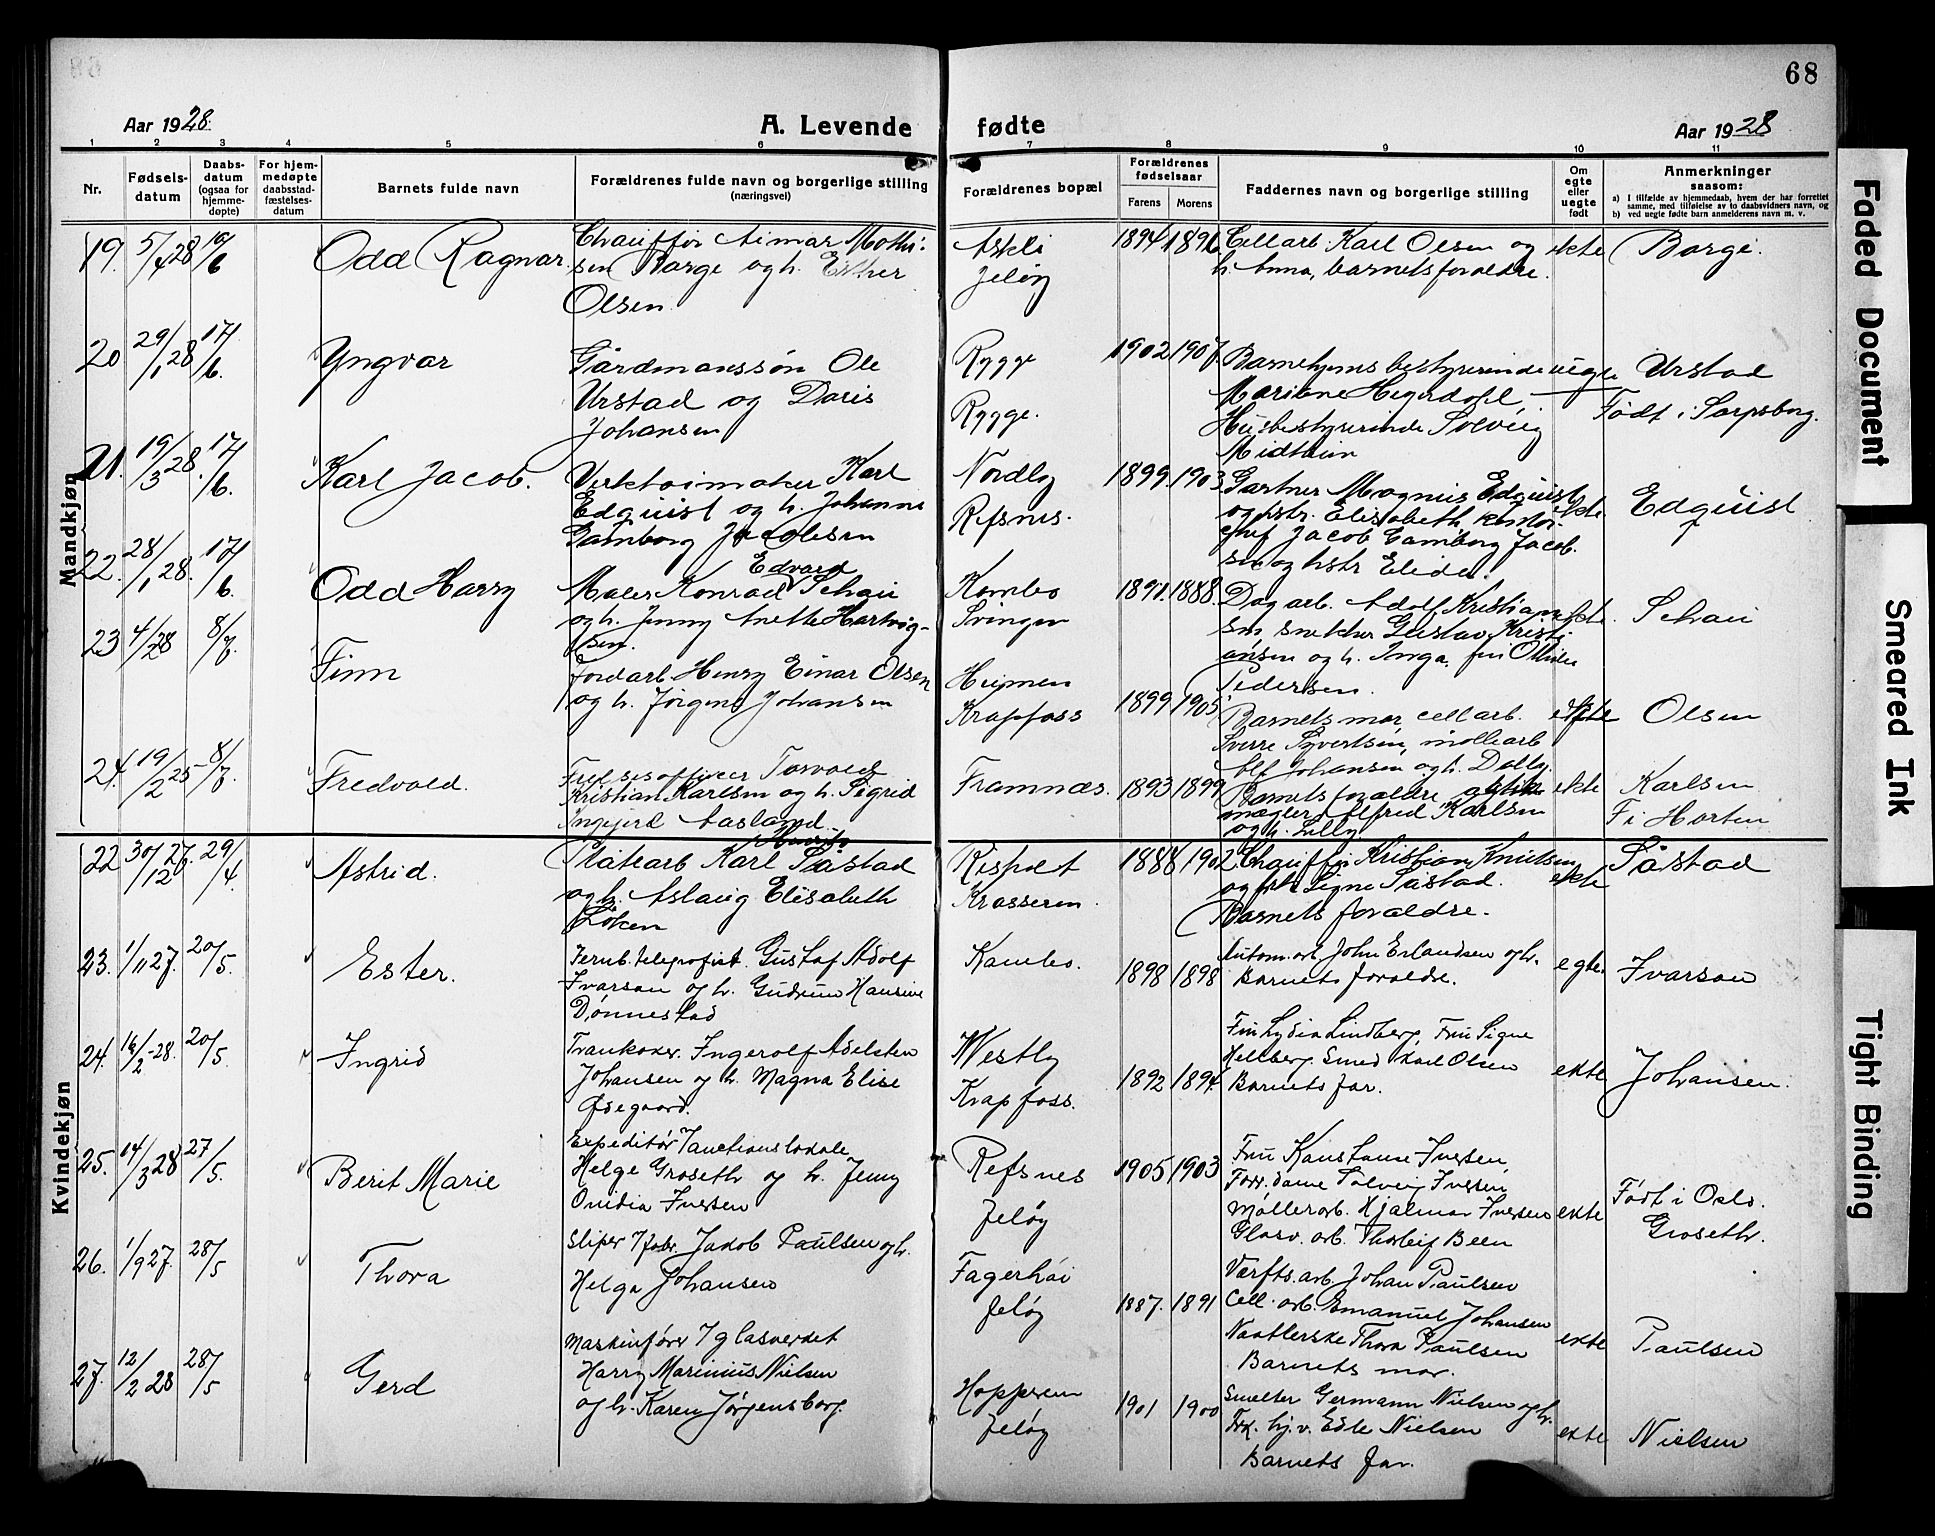 68
Aar 1928
A. Levende fødte
Aar 1928
1 2 3 4 5 6 7 8 9 10 11
Nr.
Fødsels-
datum
Daabs-
datum
(ogsaa for
hjemme-
døpte)
For hjem-
medøpte
daabsstad-
fæstelses-
datum
Barnets fulde navn
Forældrenes fulde navn og borgerlige stilling
(næringsvei)
Forældrenes bopæl
Forældrenes
fødselsaar
Farens
Morens
Faddernes navn og borgerlige stilling
Om
egte
eller
uegte
født
Anmerkninger
saasom:
a) I tilfælde av hjemmedaab, hvem der har forrettet
samme, med tilføielse av to daabsvidners navn, og
b) ved uegte fødte barn anmelderens navn m. v.
Mandkjøn
19. 5/4 28 10/6
Odd Ragnar
Chauffør Aimar Mothi-
sen Borge og h. Esther
Olsen
Jeløy
1894 1896
Cellarb. Karl Olsen og
h. Anna, barnets foraldre.
ekte
Borge.
20 29/1 28 17/6.
Yngvar
Gårdmanssøn Ole
Urstad og Doris
Johansen
Rygge
Rygge.
1902 1907
Barnehjems bestyrerinde
Mariane Heyerdahl
Husbestyrerinde Solveig
Midtheim
uegte
Urstad
Født i Sarpsborg.
21. 19/3 28. 17/6.
Karl Jacob.
Verktøimaker Karl
Edquist og h. Johanne
Gamborg Jacobsen
Nordly
Refsnes.
1899 1903
Gartner Magnus Edquist
og hstr. Elisabeth, kontor
chef Jacob Gamborg Jacob-
sen og hstr
ekte.
Edquist
22. 28/1 28. 17/6.
Odd Harry
Maler Konrad Edvard Schau
og h. Jenny Anette Hartvig-
sen.
Kambo
Svingen
1891. 1888.
Dagarb. Adolf Kristian
sen, snekker Gustav Kristi
ansen og h. Inga, fru
Pedersen.
ekte.
Schau
23 4/28 8/7.
Finn
Jordarb Henry Einar Olsen
og h. Jørgine Johansen
Heimen
Krapfoss
1899 1905
Barnets mor cellarb.
Sverre Syvertsen, møllearb
Alf Johansen og h. Dolly.
ekte
Olsen
24. 19/2 25 8/7.
Fredvald.
Frelsesofficer Torvald
Kristian Karlsen og h. Sigrid
Ingejerd Aasland
Framnæs.
1893 1899
Barnets foraldre
mægler Alfred Karlsen
og h. Lilly.
ekte
Karlsen
F. i Horten
Kvindekjøn
22 30/12 27. 29/4.
Astrid.
Platearb Karl Såstad
og h. Aslaug Elisabeth
Løken
Krosseren
1888 1902
Chauffør Kristian Knutsen
og frk Signe Såstad.
Barnets foraldre.
ekte
Såstad
23. 1/11 27. 20/5.
Ester.
Jernb. telegrafist. Gustaf Adolf
Ivarson og h. Gudrun Hansine
Dønnestad
Kambo.
1898 1898
Autom. arb. John Erlandsen og h.
Barnets foraldre.
egte.
Ivarson
24. 16/2 -28. 20/5.
Ingrid
Trankoker. Ingerolf Adelsten
Johansen og h. Magna Elise
Ødegaard.
Westly
Krapfoss.
1892 1894.
Fru Lydia Lindberg, Fru Signe
Hellberg. Smed Karl Olsen
Barnets far.
ekte
Johansen.
25. 14/3 28 27/5.
Berit Marie
Expeditør i auctionslokale
Helge Groseth og h. Jenny
Ovidia Iversen
Refsnes
Jeløy
1905 1903
Fru Konstanse Iversen,
Forr. dame Solveig Iversen
Møllerarb. Hjalmar Iversen
Glasv. arb. Thorleif Been
ekte
Født i Oslo.
Groseth.
26. 1/9 27. 28/5
Thora
Sliper i fabr. Jakob Paulsen og h.
Helga Johansen
Fagerhøi
Jeløy
1887. 1891
Værfts. arb. Johan Paulsen
Cell. arb. Emanuel Johansen
Thora Paulsen
Barnets mor.
ekte
Paulsen
27. 12/2 28 28/5
Gerd
Maskinfører i glasverket
Harry Marinius Nielsen
og h. Karen Jørgensborg.
Hoppern
Jeløy
1901 1900
Smelter Germann Nielsen og h.
Frk. hj. v. Edle Nielsen
Barnets far.
ekte
Nielsen
Faded Document
Smeared Ink
Tight Binding